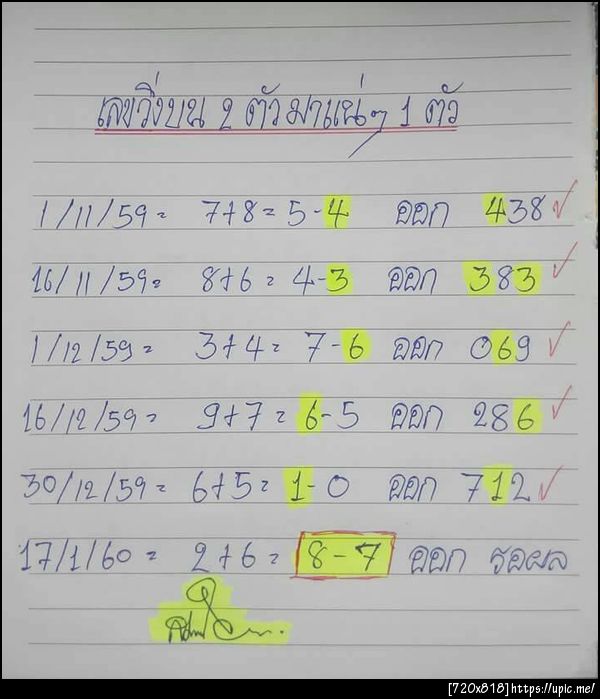 เลขวิ่งบน 2 ตัวมาแน่ๆ 1 ตัว
1/11/59 = 7+8 = 5-4 ออก 438 ✓
16/11/59 = 8+6 = 4-3 ออก 383 ✓
1/12/59 = 3+4 = 7-6 ออก 069 ✓
16/12/59 = 9+7 = 6-5 ออก 286 ✓
30/12/59 = 6+5 = 1-0 ออก 712 ✓
17/1/60 = 2+6 = 8-7 ออก รอผล
[720x818]https://upic.me/